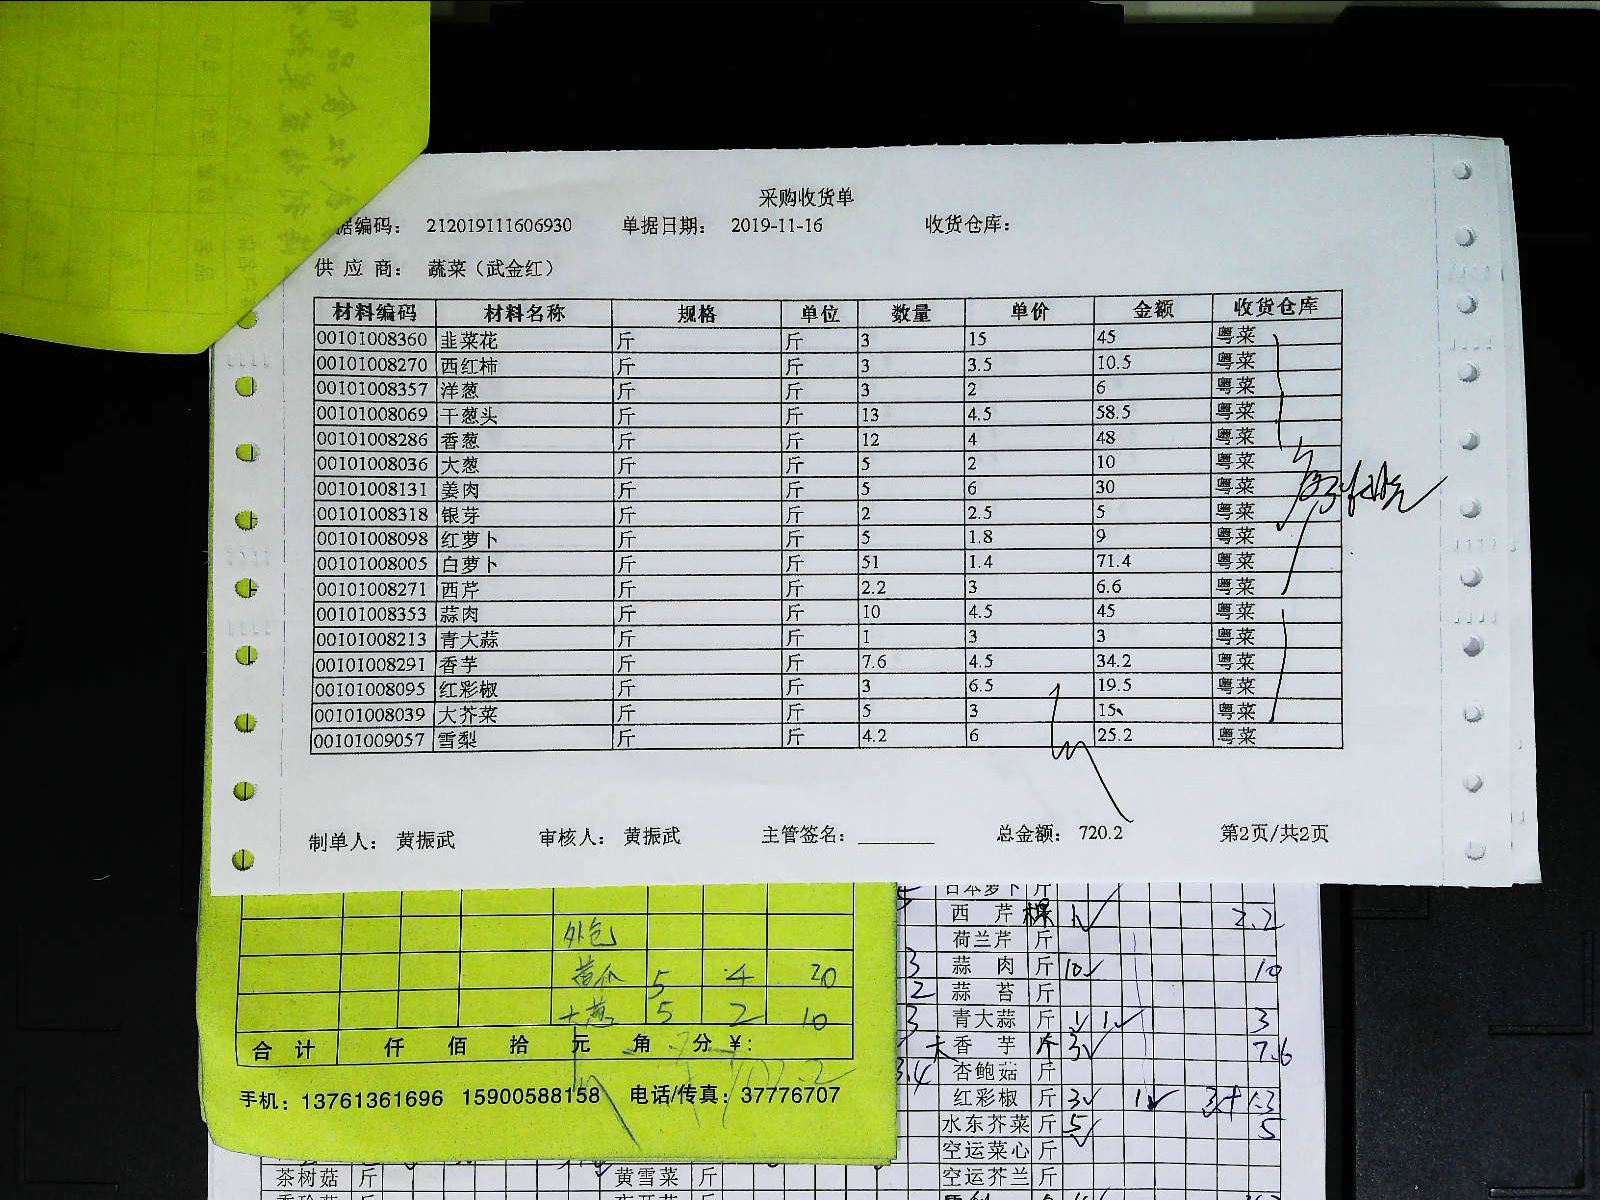 采购收货单
据编码： 212019111606930 单据日期： 2019-11-16 收货仓库：
供 应 商： 蔬菜（武金红）
材料编码 材料名称 规格 单位 数量 单价 金额 收货仓库
00101008360 韭菜花 斤 斤 3 15 45 粤菜
00101008270 西红柿 斤 斤 3 3.5 10.5 粤菜
00101008357 洋葱 斤 斤 3 2 6 粤菜
00101008069 干葱头 斤 斤 13 4.5 58.5 粤菜
00101008286 香葱 斤 斤 12 4 48 粤菜
00101008036 大葱 斤 斤 5 2 10 粤菜
00101008131 姜肉 斤 斤 5 6 30 粤菜
00101008318 银芽 斤 斤 2 2.5 5 粤菜
00101008098 红萝卜 斤 斤 5 1.8 9 粤菜
00101008005 白萝卜 斤 斤 51 1.4 71.4 粤菜
00101008271 西芹 斤 斤 2.2 3 6.6 粤菜
00101008353 蒜肉 斤 斤 10 4.5 45 粤菜
00101008213 青大蒜 斤 斤 1 3 3 粤菜
00101008291 香芋 斤 斤 7.6 4.5 34.2 粤菜
00101008095 红彩椒 斤 斤 3 6.5 19.5 粤菜
00101008039 大芥菜 斤 斤 5 3 15 粤菜
00101009057 雪梨 斤 斤 4.2 6 25.2 粤菜
制单人： 黄振武 审核人： 黄振武 主管签名： 总金额： 720.2 第2页/共2页
外包
黄瓜 5 4 20
大葱 5 2 10
合 计 仟 佰 拾 元 角 分 ¥:
手机：13761361696 15900588158 电话/传真：37776707
日本萝卜 斤
西 芹 棵 1 2.2
荷兰芹 斤
蒜 肉 斤 10 10
蒜 苔 斤
青大蒜 斤 1 1 3
大香 芋 个 3 7.6
杏鲍菇 斤
红彩椒 斤 3 1 3+1.3
水东芥菜 斤 5 5
空运菜心 斤
茶树菇 斤 黄雪菜 斤 空运芥兰 斤